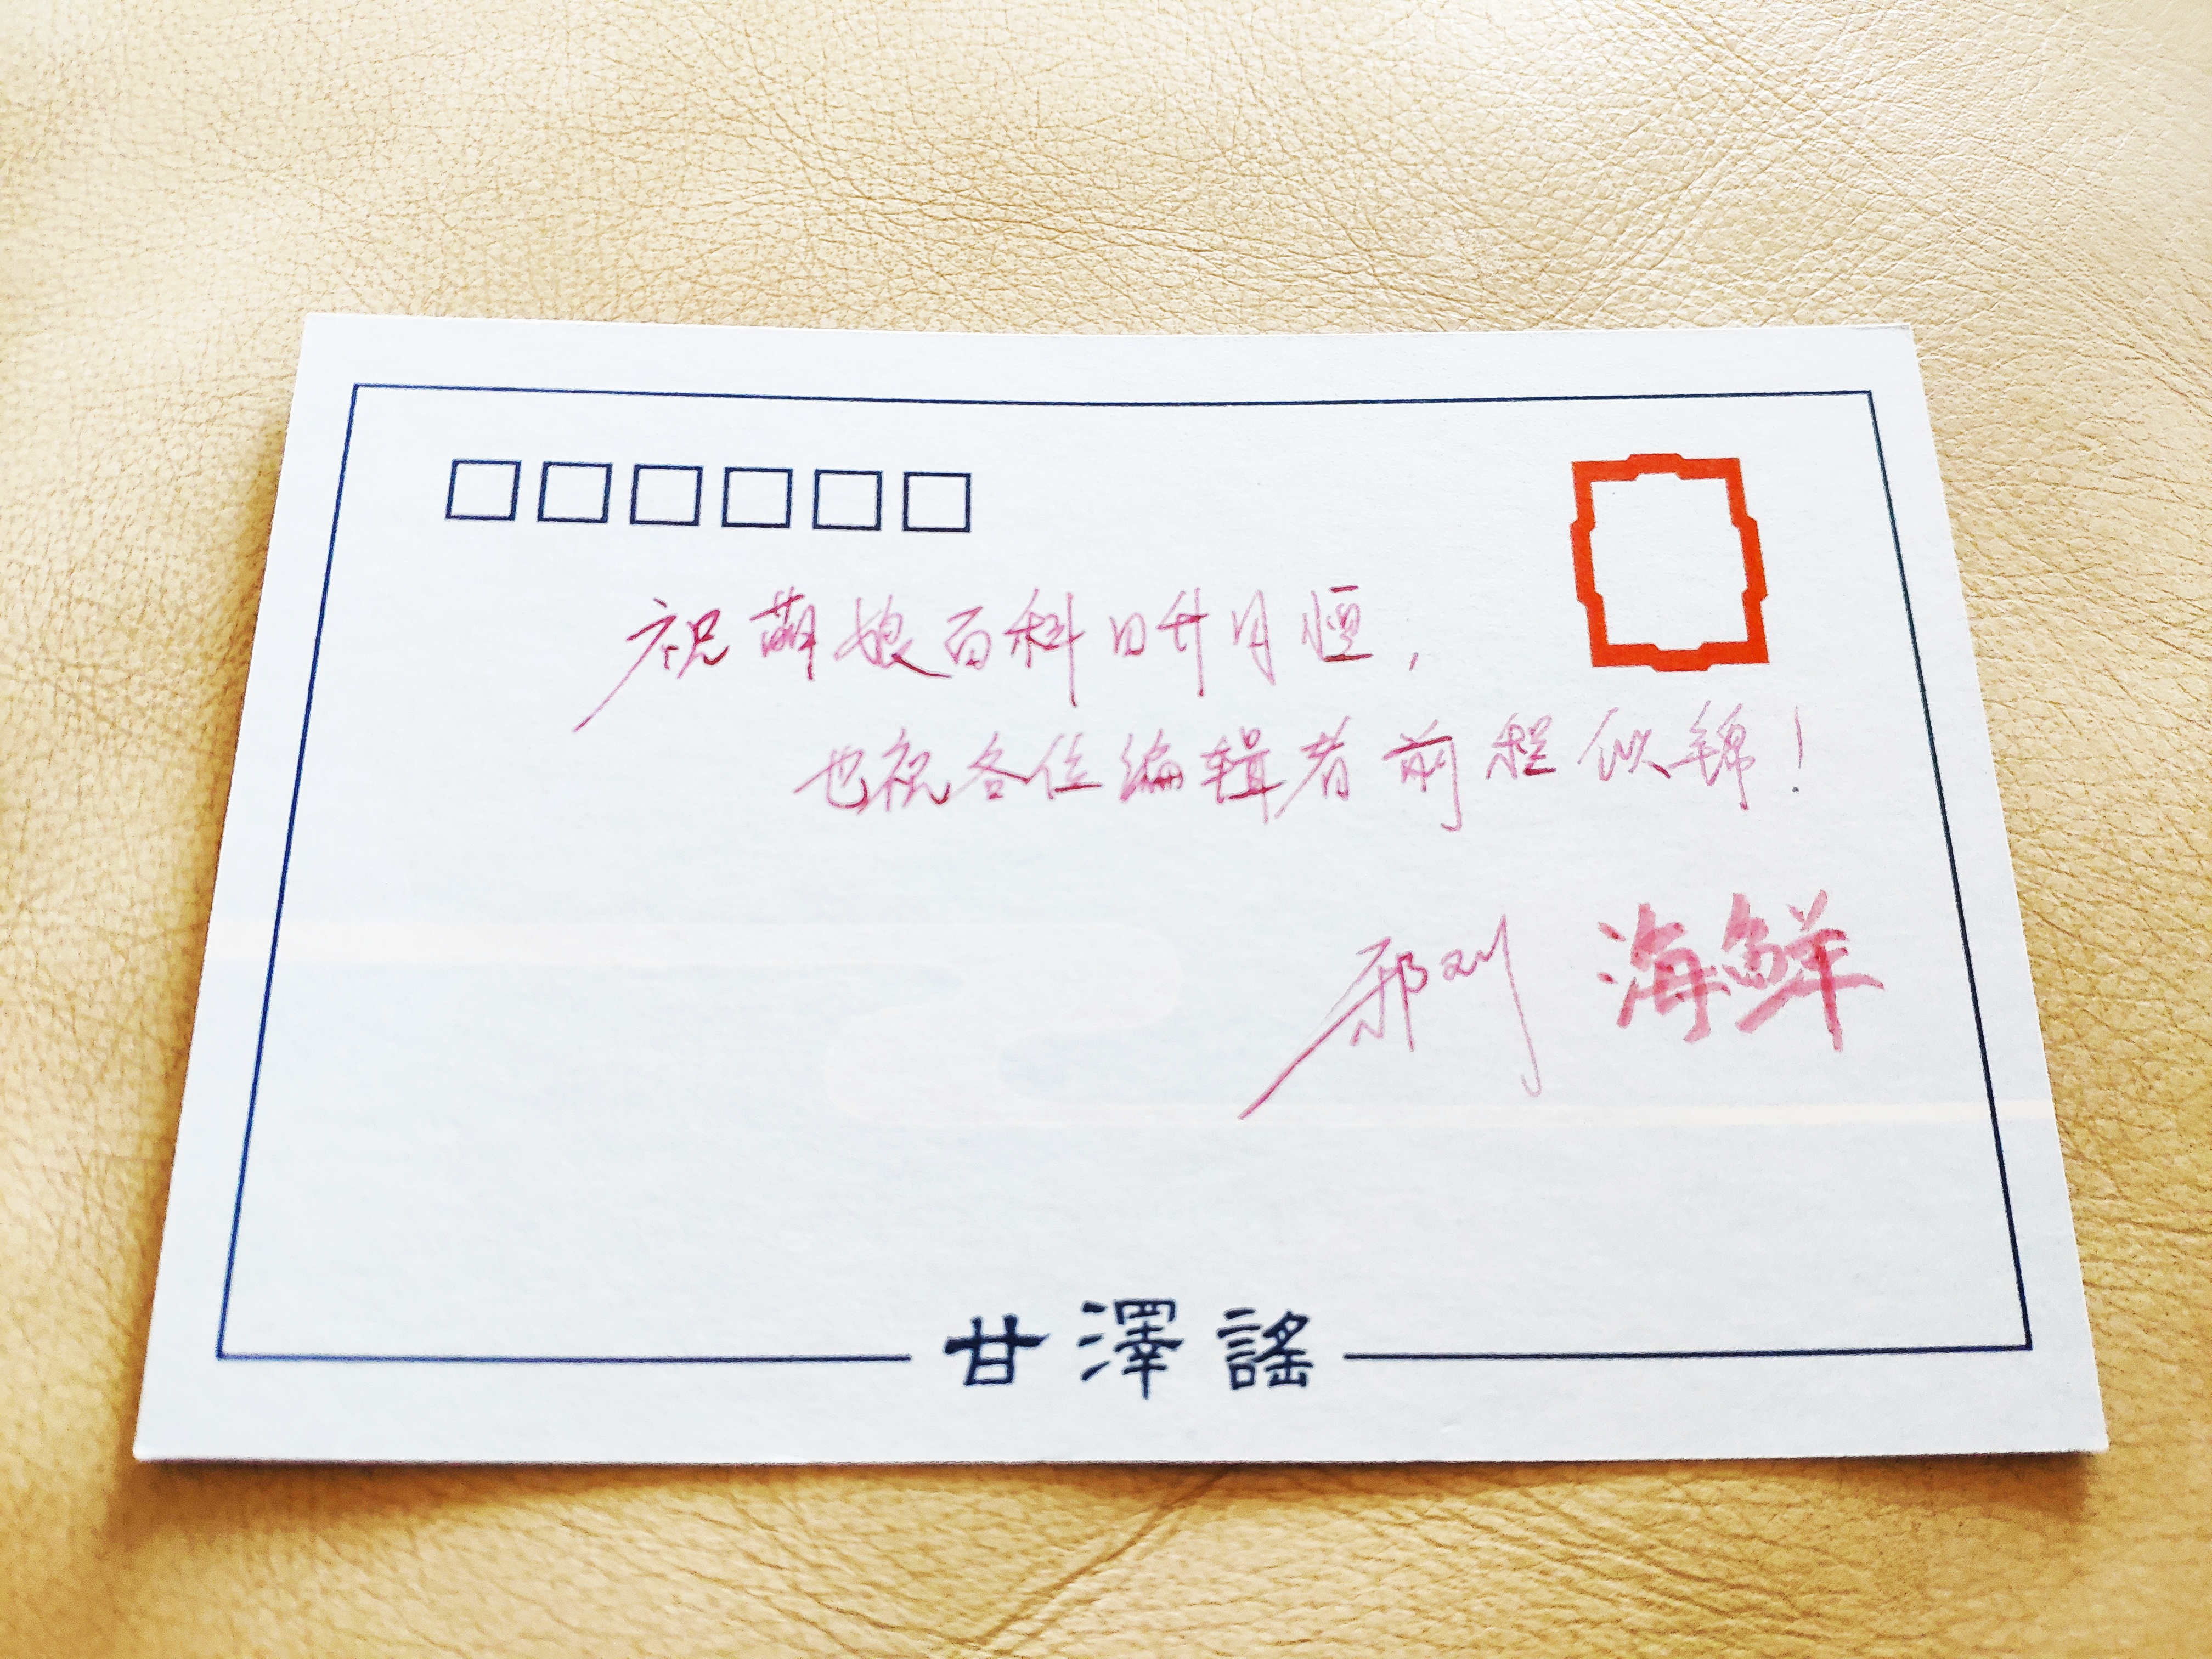 祝萌娘百科日升月恒，
也祝各位编辑者前程似锦！
海鲜
甘澤謠